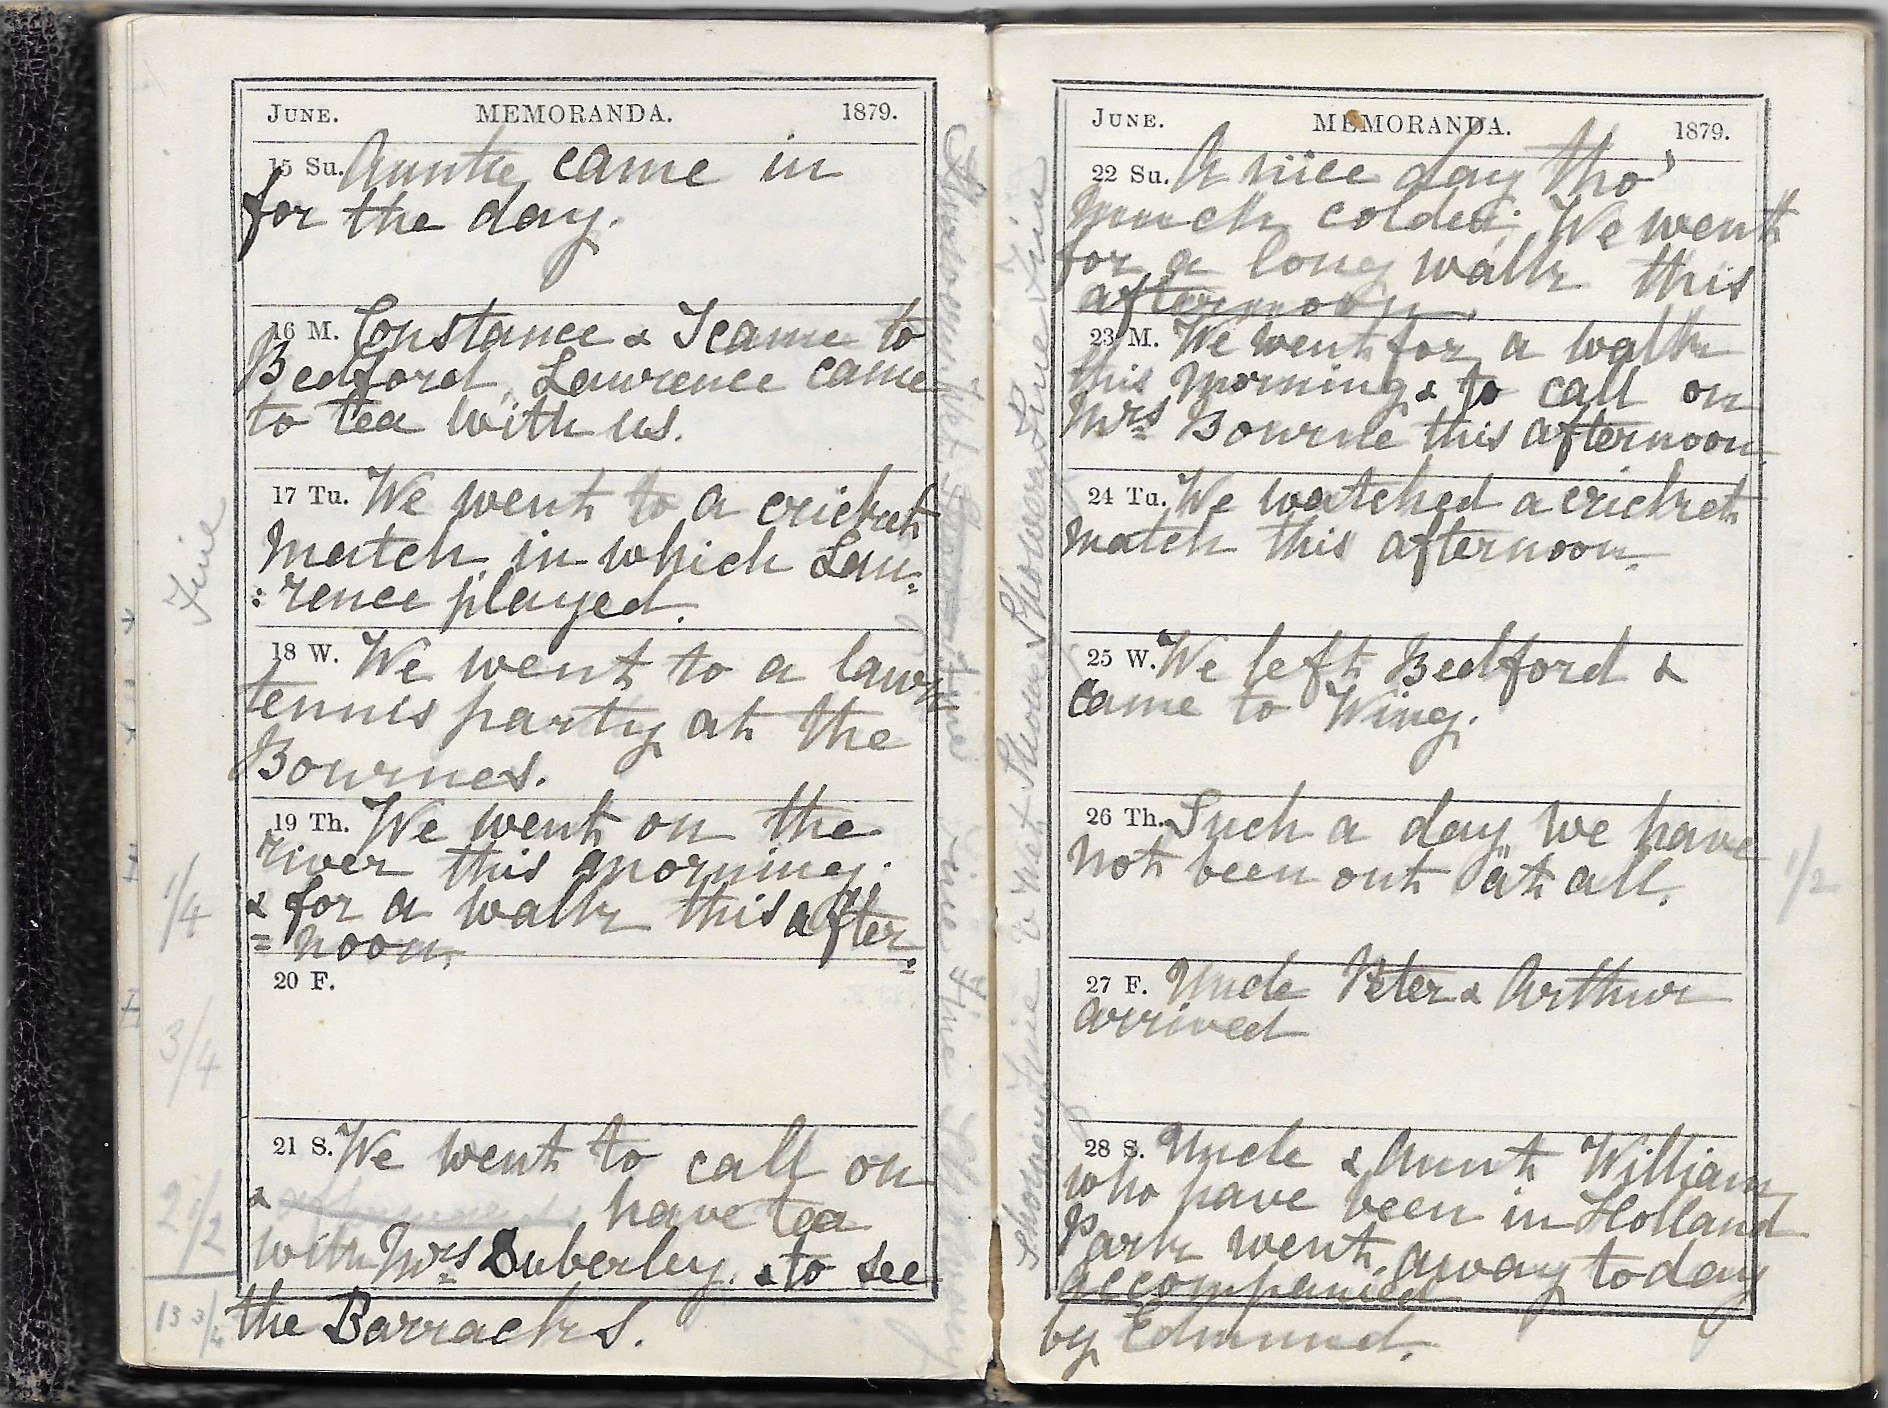 JUNE. MEMORANDA. 1879.
15 Su. Auntie came in
for the day.
16 M. Constance & I came to
Bedford. Lawrence came
to tea with us.
17 Tu. We went to a cricket
match in which Law=
:rence played.
18 W. We went to a lawn
tennis party at the
Bournes.
19 Th. We went on the
river this morning.
& for a walk this after
= noon.
20 F.
21 S. We went to call on
& have tea
with Mrs Duberley. & to see
the Barracks.
Fine
1/4
3/4
2 1/2
13 3/4
JUNE. MEMORANDA. 1879.
22 Su. A nice day tho'
much colder. We went
for a long walk this
afternoon.
23 M. We went for a walk
this morning & to call on
Mrs Bourne this afternoon
24 Tu. We watched a cricket
match this afternoon.
25 W. We left Bedford &
came to Wing.
26 Th. Such a day we have
not been out at all.
27 F. Uncle Peter & Arthur
arrived
28 S. Uncle & Aunt William
who have been in Holland
Park went away today
accompanied
by Edmund.
1/2